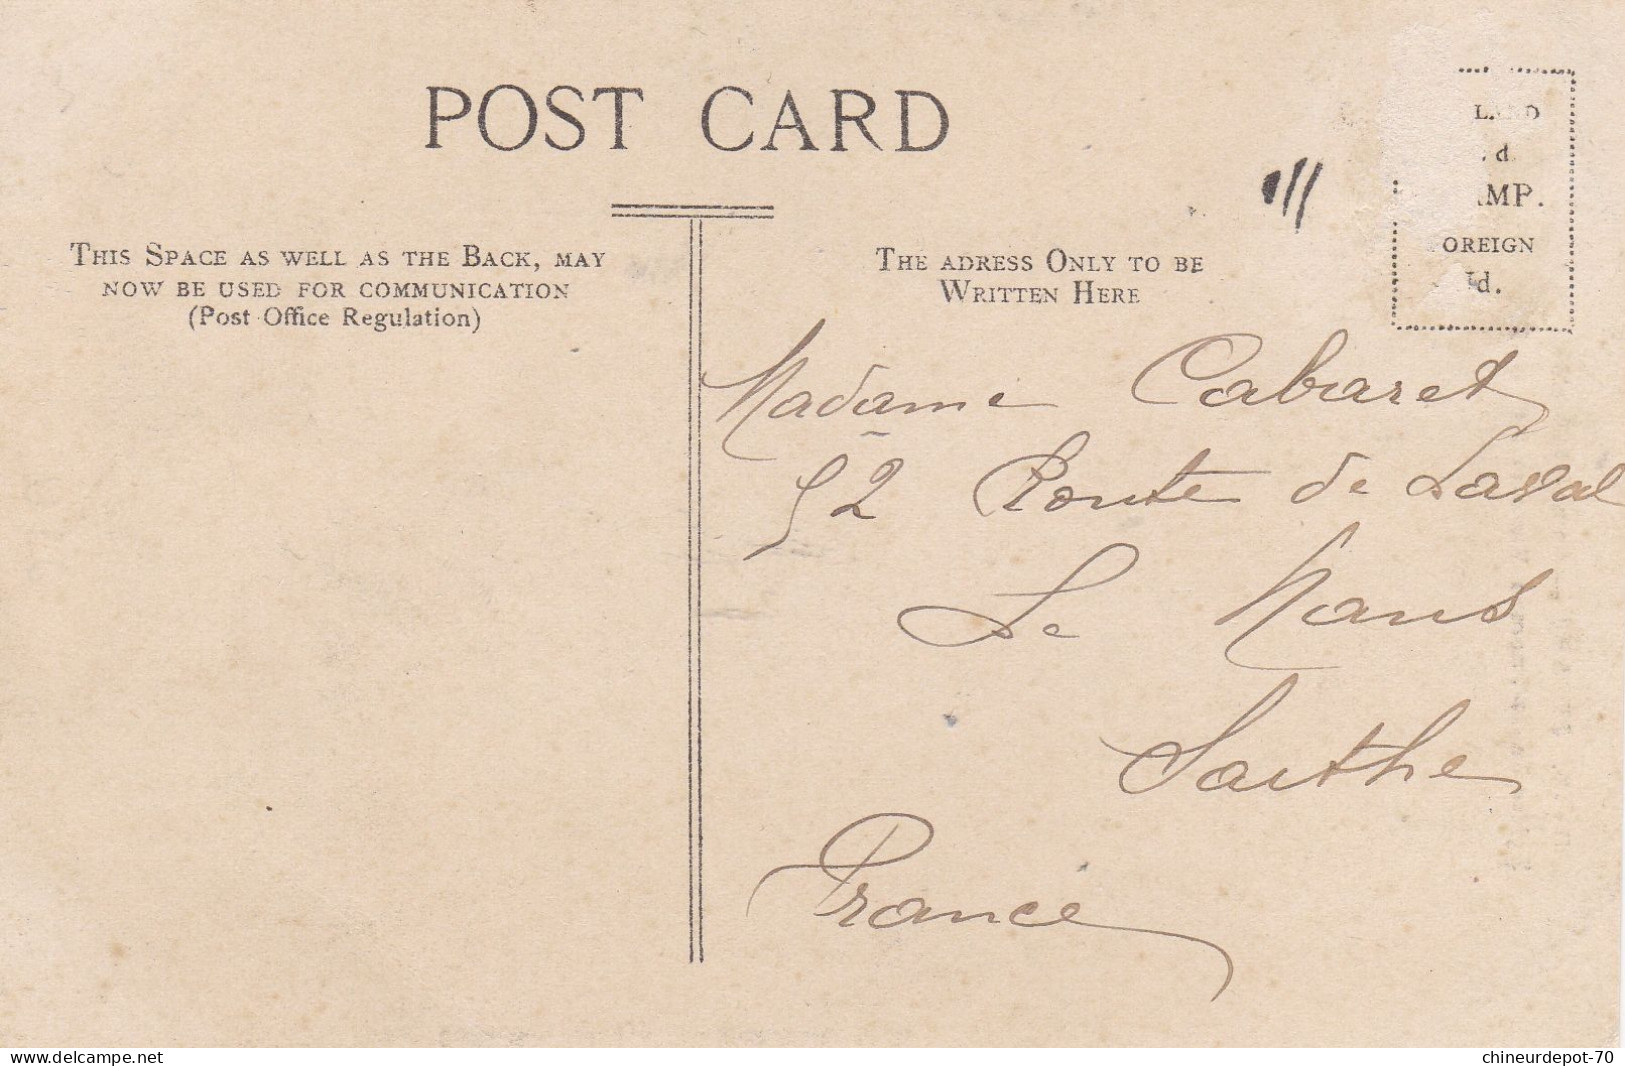 POST CARD
THIS SPACE AS WELL AS THE BACK, MAY
NOW BE USED FOR COMMUNICATION
(Post Office Regulation)
THE ADRESS ONLY TO BE
WRITTEN HERE
LAND
d.
MP.
OREIGN
1d.
Madame Cabaret
52 Route de Laval
Le Mans
Sarthe
France
delcampe.net
chineurdepot-70